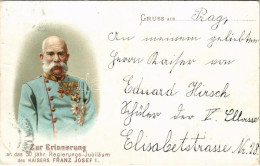 GRUSS aus Prag,
An meinem geliebten
Herrn Kaiser von
Eduard Hirsch
Schüler der V. Classe
Elisabetstrasse No 28.
Zur Erinnerung
an das 50 jähr. Regierungs-Jubiläum
des KAISERS FRANZ JOSEF I.